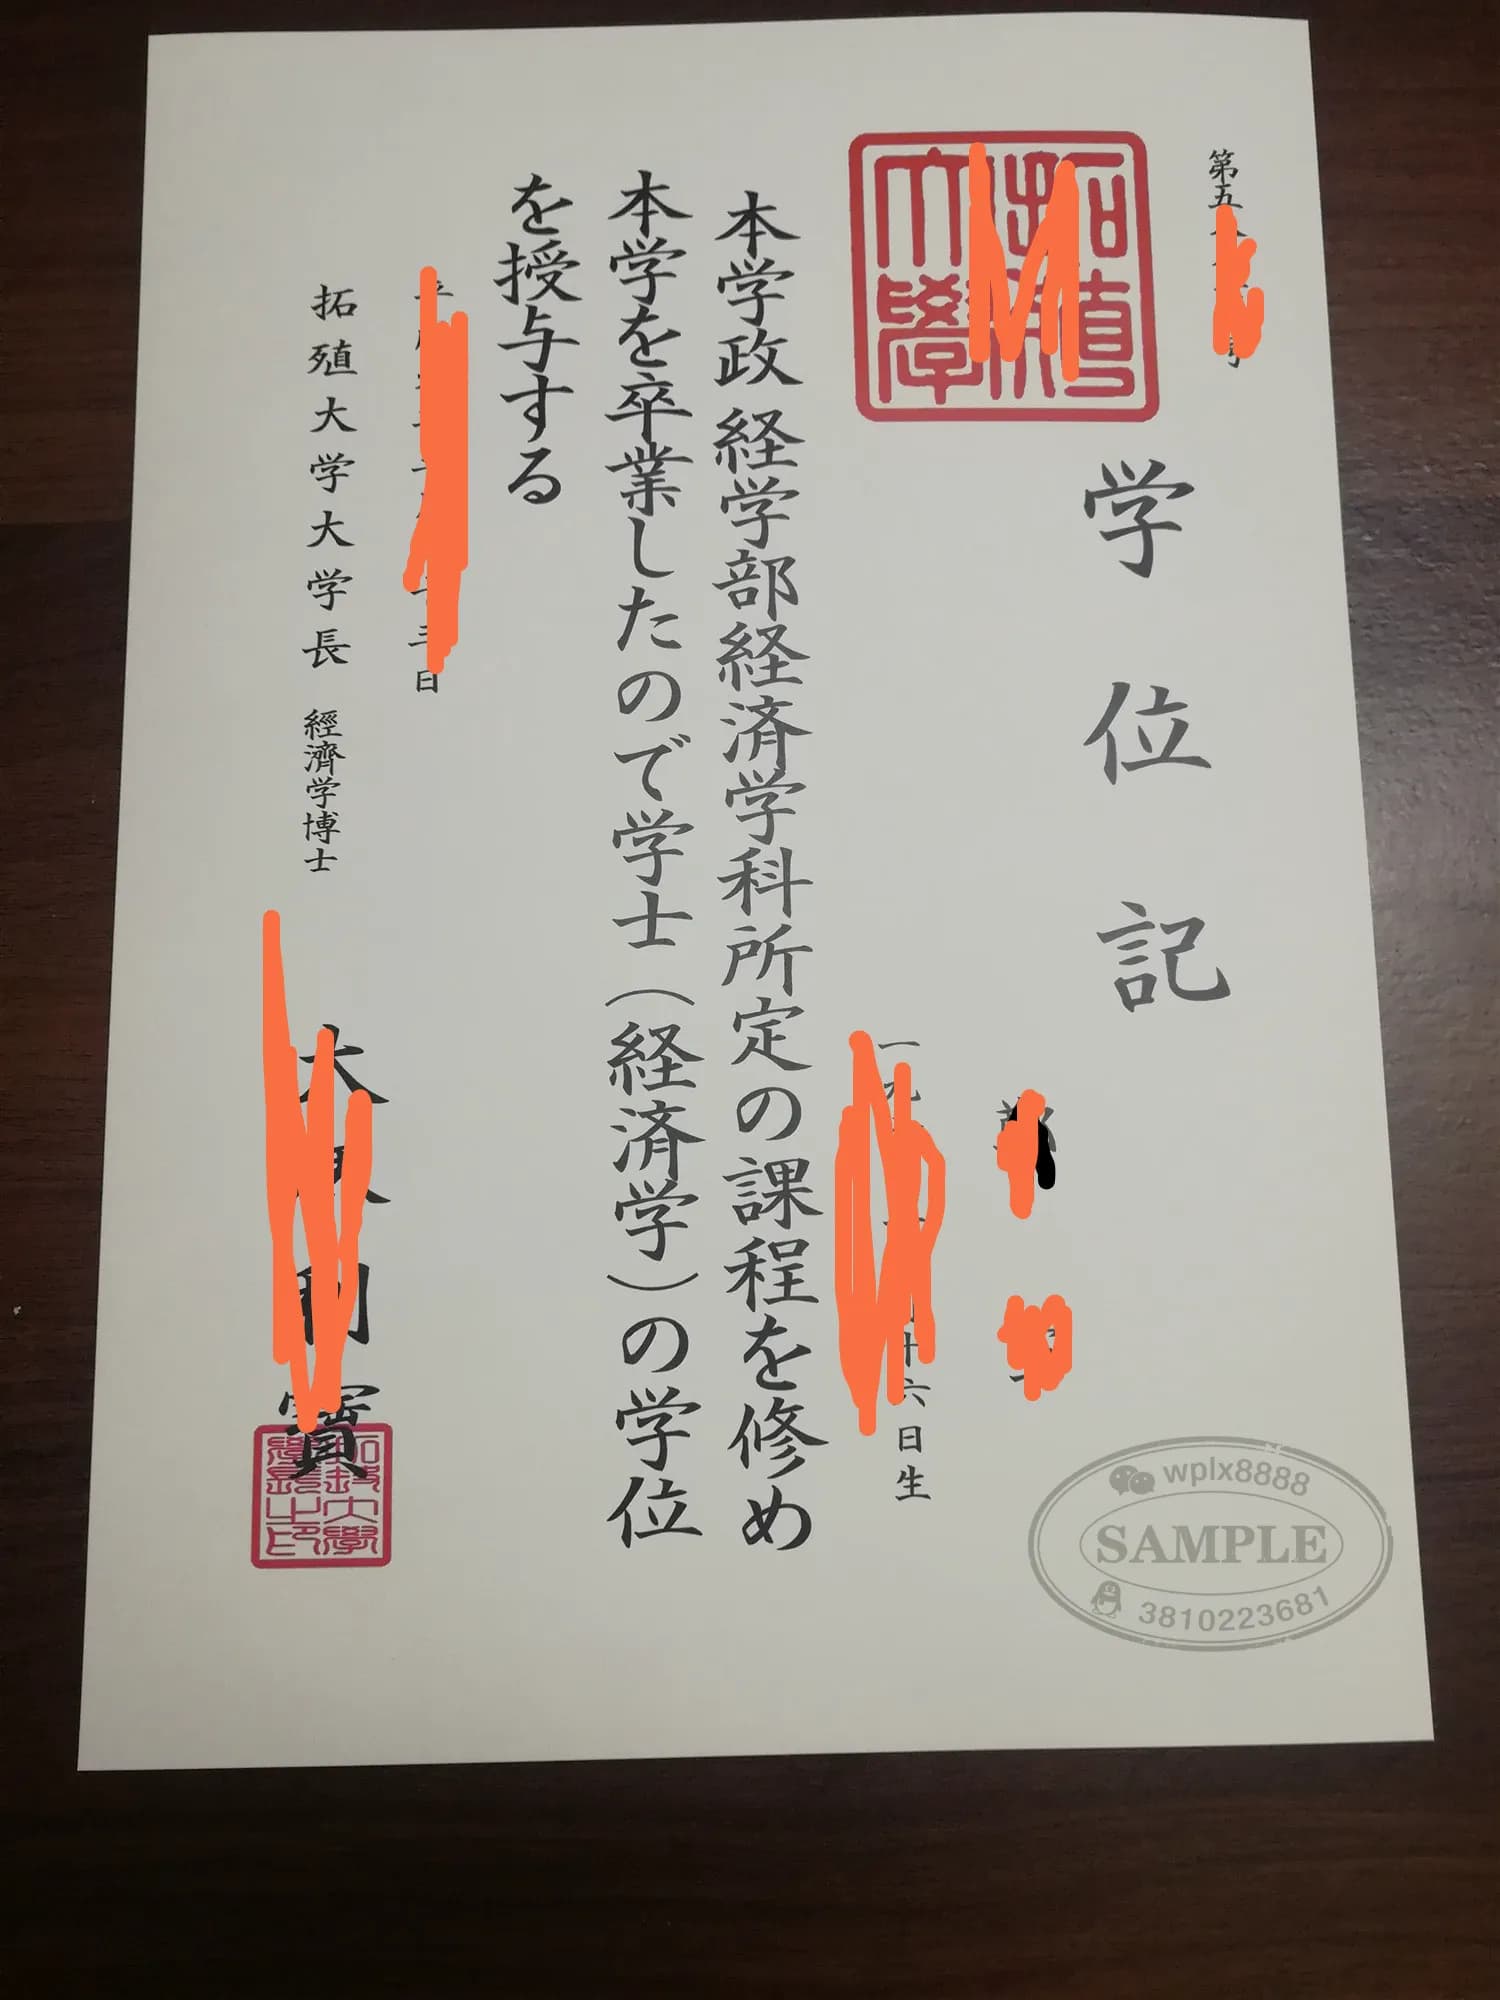 第五
学位記
日生
本学政経学部経済学科所定の課程を修め
本学を卒業したので学士(経済学)の学位
を授与する
三日
拓殖大学大学長 經濟学博士
寶
wplx8888
SAMPLE
3810223681